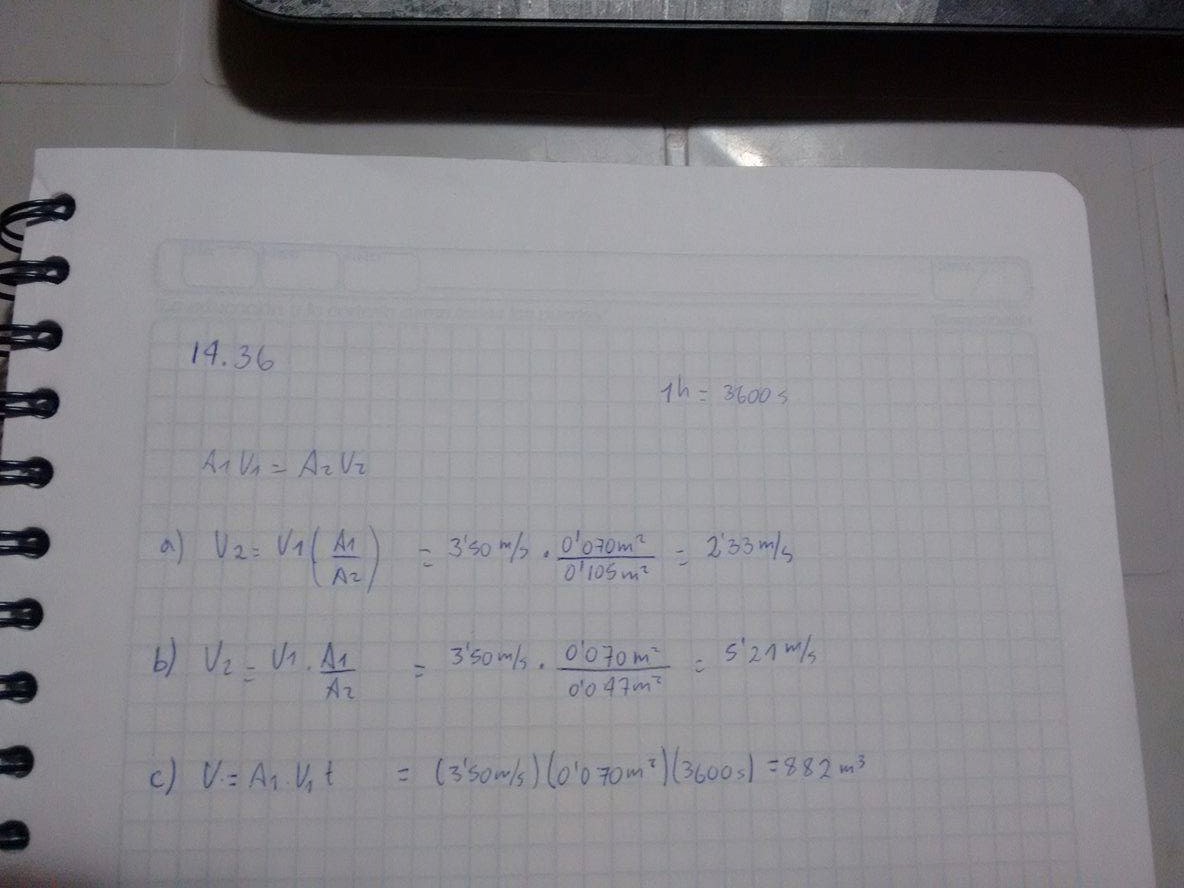 14.36
1h = 3600 s
A1 V1 = A2 V2
a) V2 = V1 (A1/A2) = 3'50 m/s · 0'070 m²/0'105 m² = 2'33 m/s
b) V2 = V1 · A1/A2 = 3'50 m/s · 0'070 m²/0'047 m² = 5'21 m/s
c) V = A1 · V1 t = (3'50 m/s)(0'070 m²)(3600 s) = 882 m³